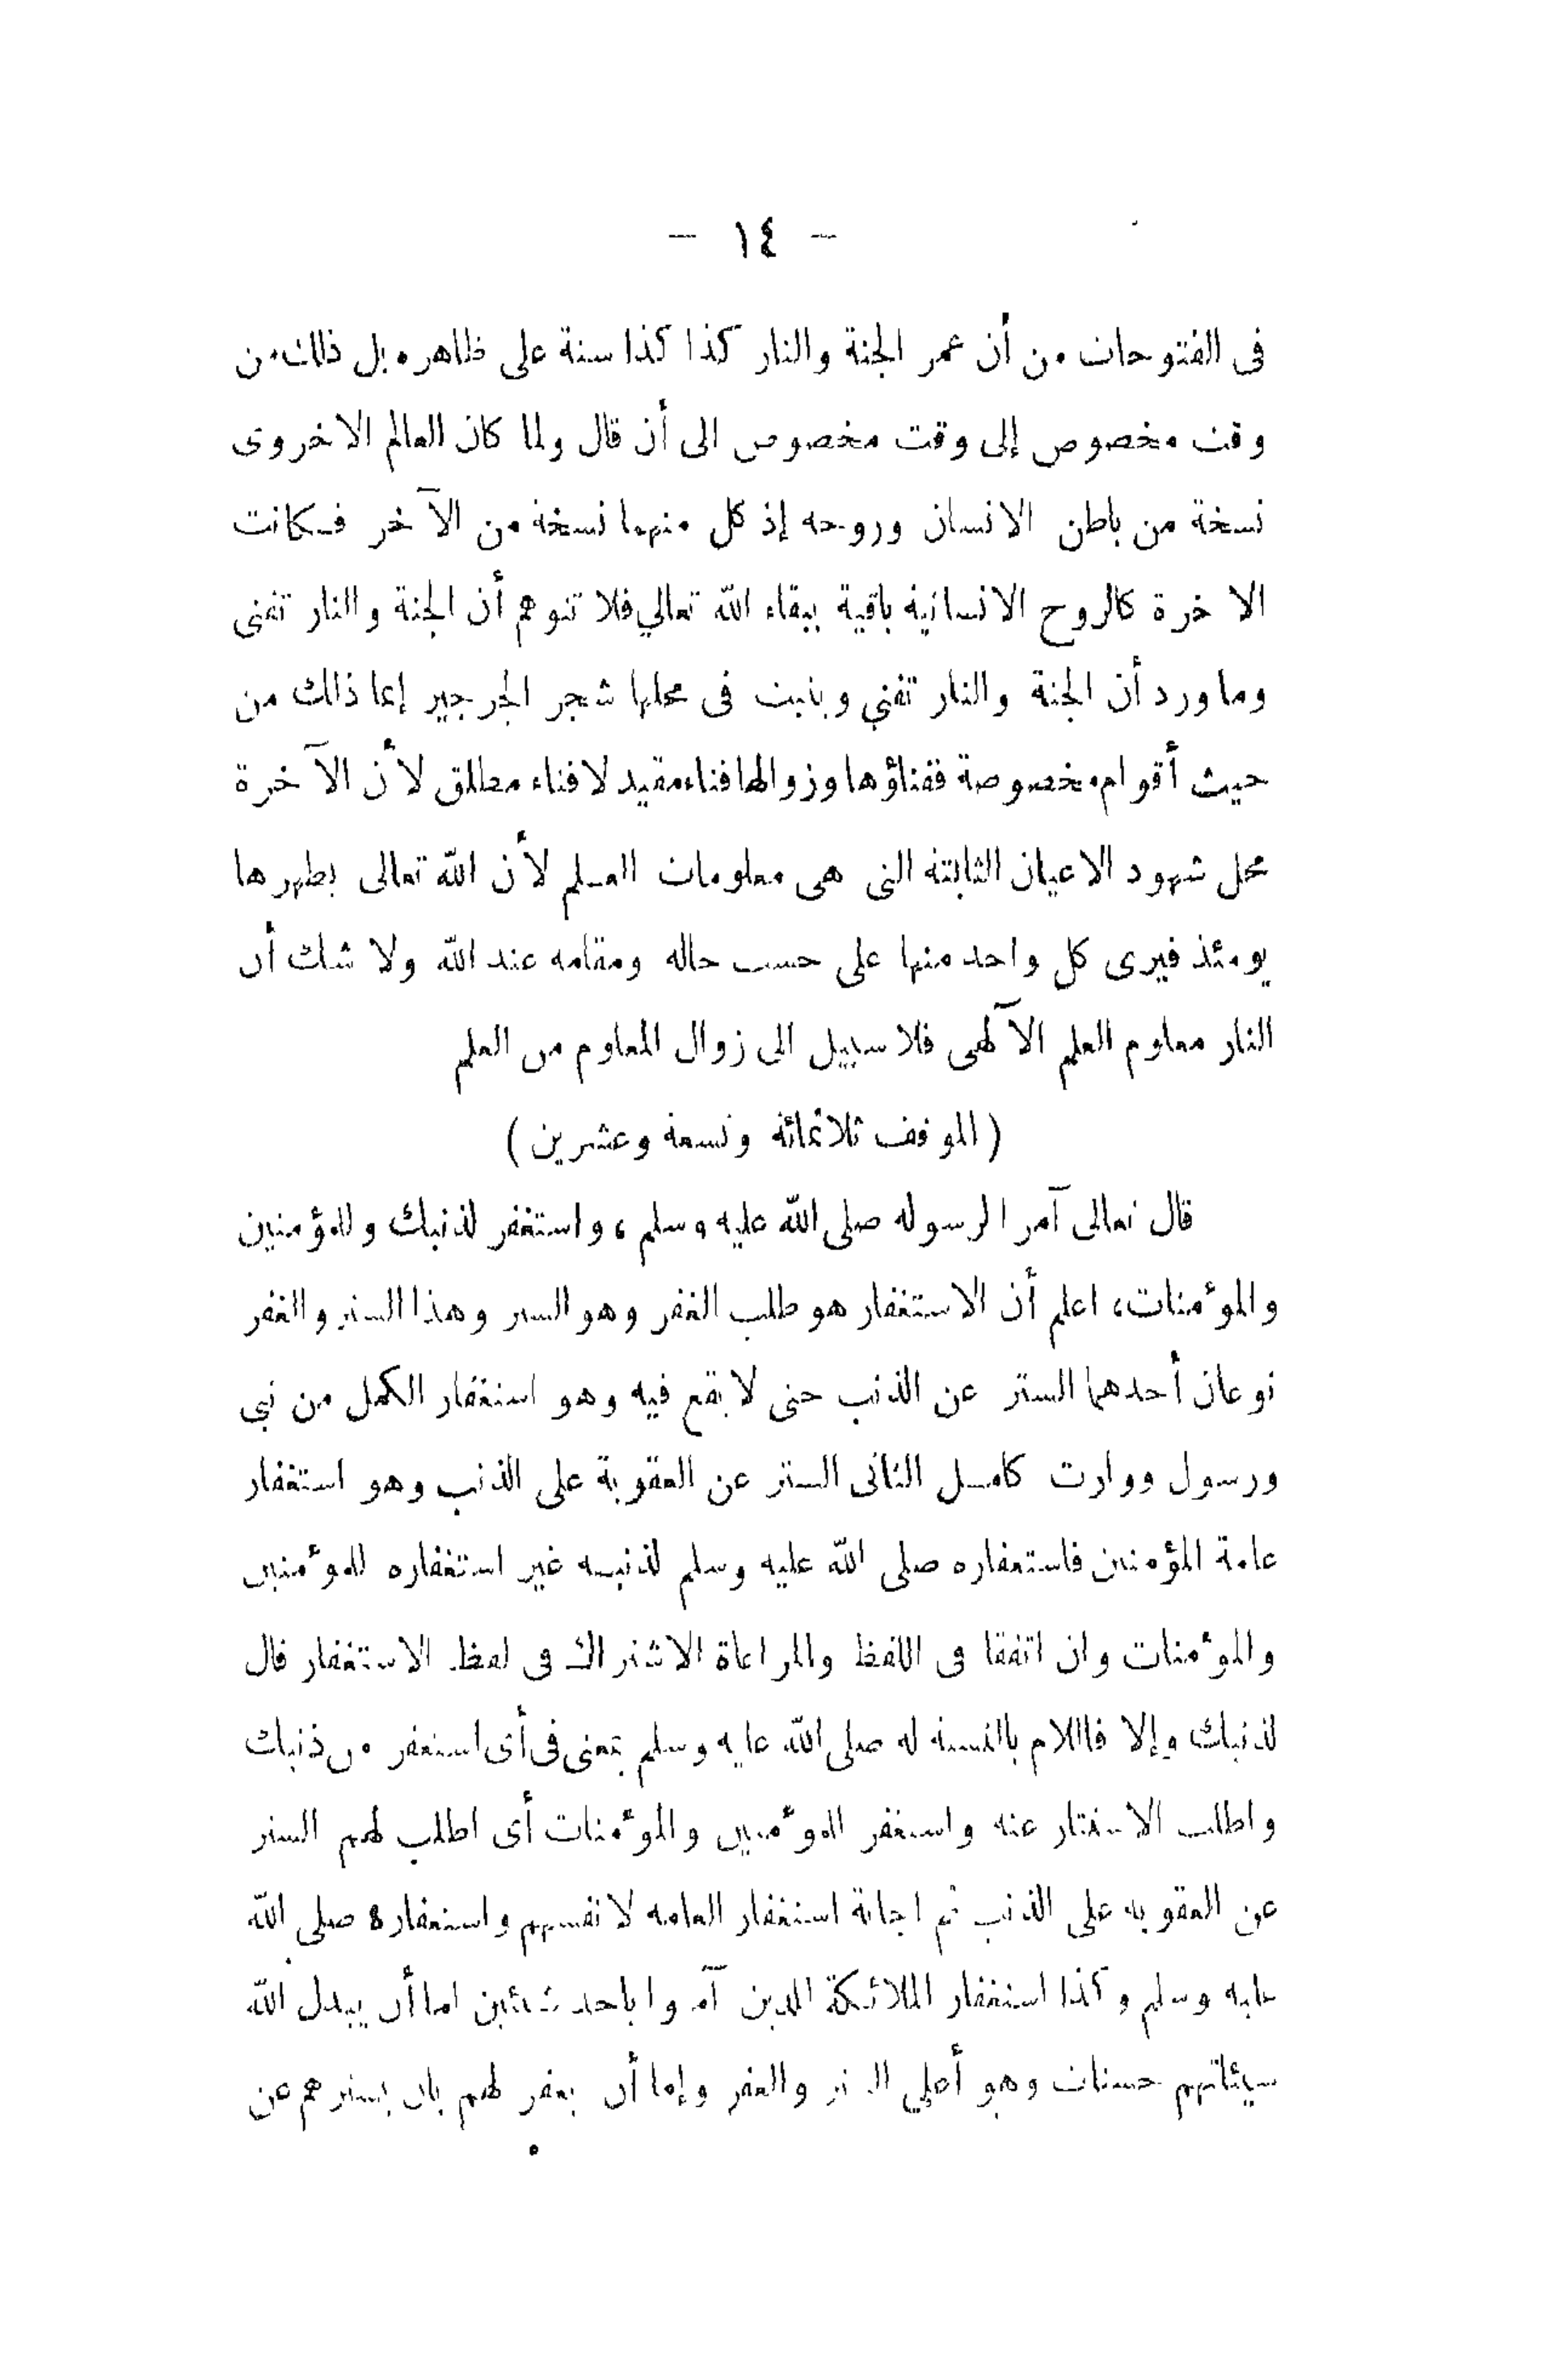 - ١٤ -
فى الفتوحات من أن عمر الجنة والنار كذا كذا سنة على ظاهره بل ذلك من
وقت مخصوص إلى وقت مخصوص الى أن قال ولما كان العالم الاخروى
نسخة من باطن الانسان وروحه إذ كل منهما نسخة من الآخر فكانت
الاخرة كالروح الانسانية باقية ببقاء الله تعالي فلا تتوهم أن الجنة والنار تفنى
وما ورد أن الجنة والنار تفني وينبت فى محلها شجر الجرجير إنما ذلك من
حيث أقوام مخصوصة ففناؤها وزوالها فناء مقيد لا فناء مطلق لأن الآخرة
محل شهود الاعيان الثابتة التى هى معلومات العلم لأن الله تعالى يظهرها
يومئذ فيرى كل واحد منها على حسب حاله ومقامه عند الله ولا شك أن
النار معلوم العلم الآلهى فلا سبيل الى زوال المعلوم من العلم
( الموقف ثلاثمائة وتسعة وعشرين )
قال تعالى آمرا لرسوله صلى الله عليه وسلم ، واستغفر لذنبك وللمؤمنين
والموٴمنات، اعلم أن الاستغفار هو طلب الغفر وهو الستر وهذا الستر والغفر
نوعان أحدهما الستر عن الذنب حتى لا يقع فيه وهو استغفار الكمل من نبي
ورسول ووارث كامل الثانى الستر عن العقوبة على الذنب وهو استغفار
عامة المؤمنين فاستغفاره صلى الله عليه وسلم لذنبه غير استغفاره للموٴمنين
والموٴمنات وان اتفقا فى اللفظ والمراعاة الاشتراك فى لفظ الاستغفار قال
لذنبك وإلا فاللام بالنسبة له صلى الله عليه وسلم بمعنى فى أى استغفر من ذنبك
واطلب الاستتار عنه واستغفر للموٴمنين والموٴمنات أى اطلب لهم الستر
عن العقوبة على الذنب ثم اجابة استغفار العامه لانفسهم واستغفاره صلى الله
عليه وسلم وكذا استغفار الملائكة للذين آمنوا باحد شيئين اما أن يبدل الله
سيئاتهم حسنات وهو أعلي الستر والغفر وإما أن يغفر لهم بان يسترهم عن